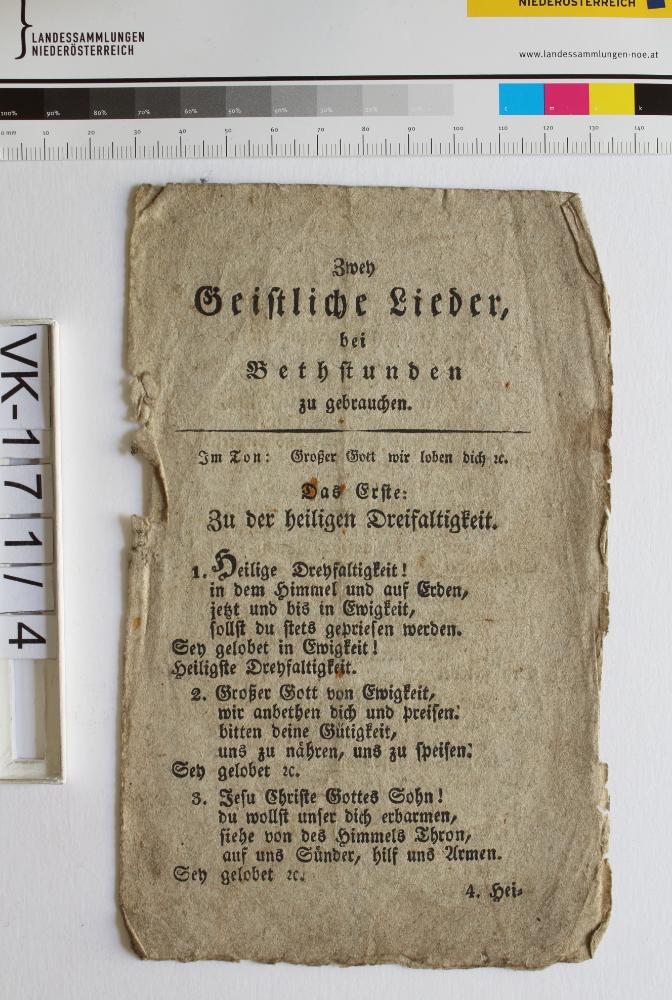 NIEDERÖSTERREICH
LANDESSAMMLUNGEN
NIEDERÖSTERREICH
www.landessammlungen-noe.at
100% 90% 80% 70% 60% 50% 40% 30% 20% 10% c m y k
0 mm 10 20 30 40 50 60 70 80 90 100 110 120 130 140
VK-171/4
Zwey
Geistliche Lieder,
bei
Bethstunden
zu gebrauchen.
Im Ton: Großer Gott wir loben dich ꝛc.
Das Erste:
Zu der heiligen Dreifaltigkeit.
1. Heilige Dreyfaltigkeit!
in dem Himmel und auf Erden,
jetzt und bis in Ewigkeit,
sollst du stets gepriesen werden.
Sey gelobet in Ewigkeit!
Heiligste Dreyfaltigkeit.
2. Großer Gott von Ewigkeit,
wir anbethen dich und preisen:
bitten deine Gütigkeit,
uns zu nähren, uns zu speisen:
Sey gelobet ꝛc.
3. Jesu Christe Gottes Sohn!
du wollst unser dich erbarmen,
siehe von des Himmels Thron,
auf uns Sünder, hilf uns Armen.
Sey gelobet ꝛc.
4. Hei-